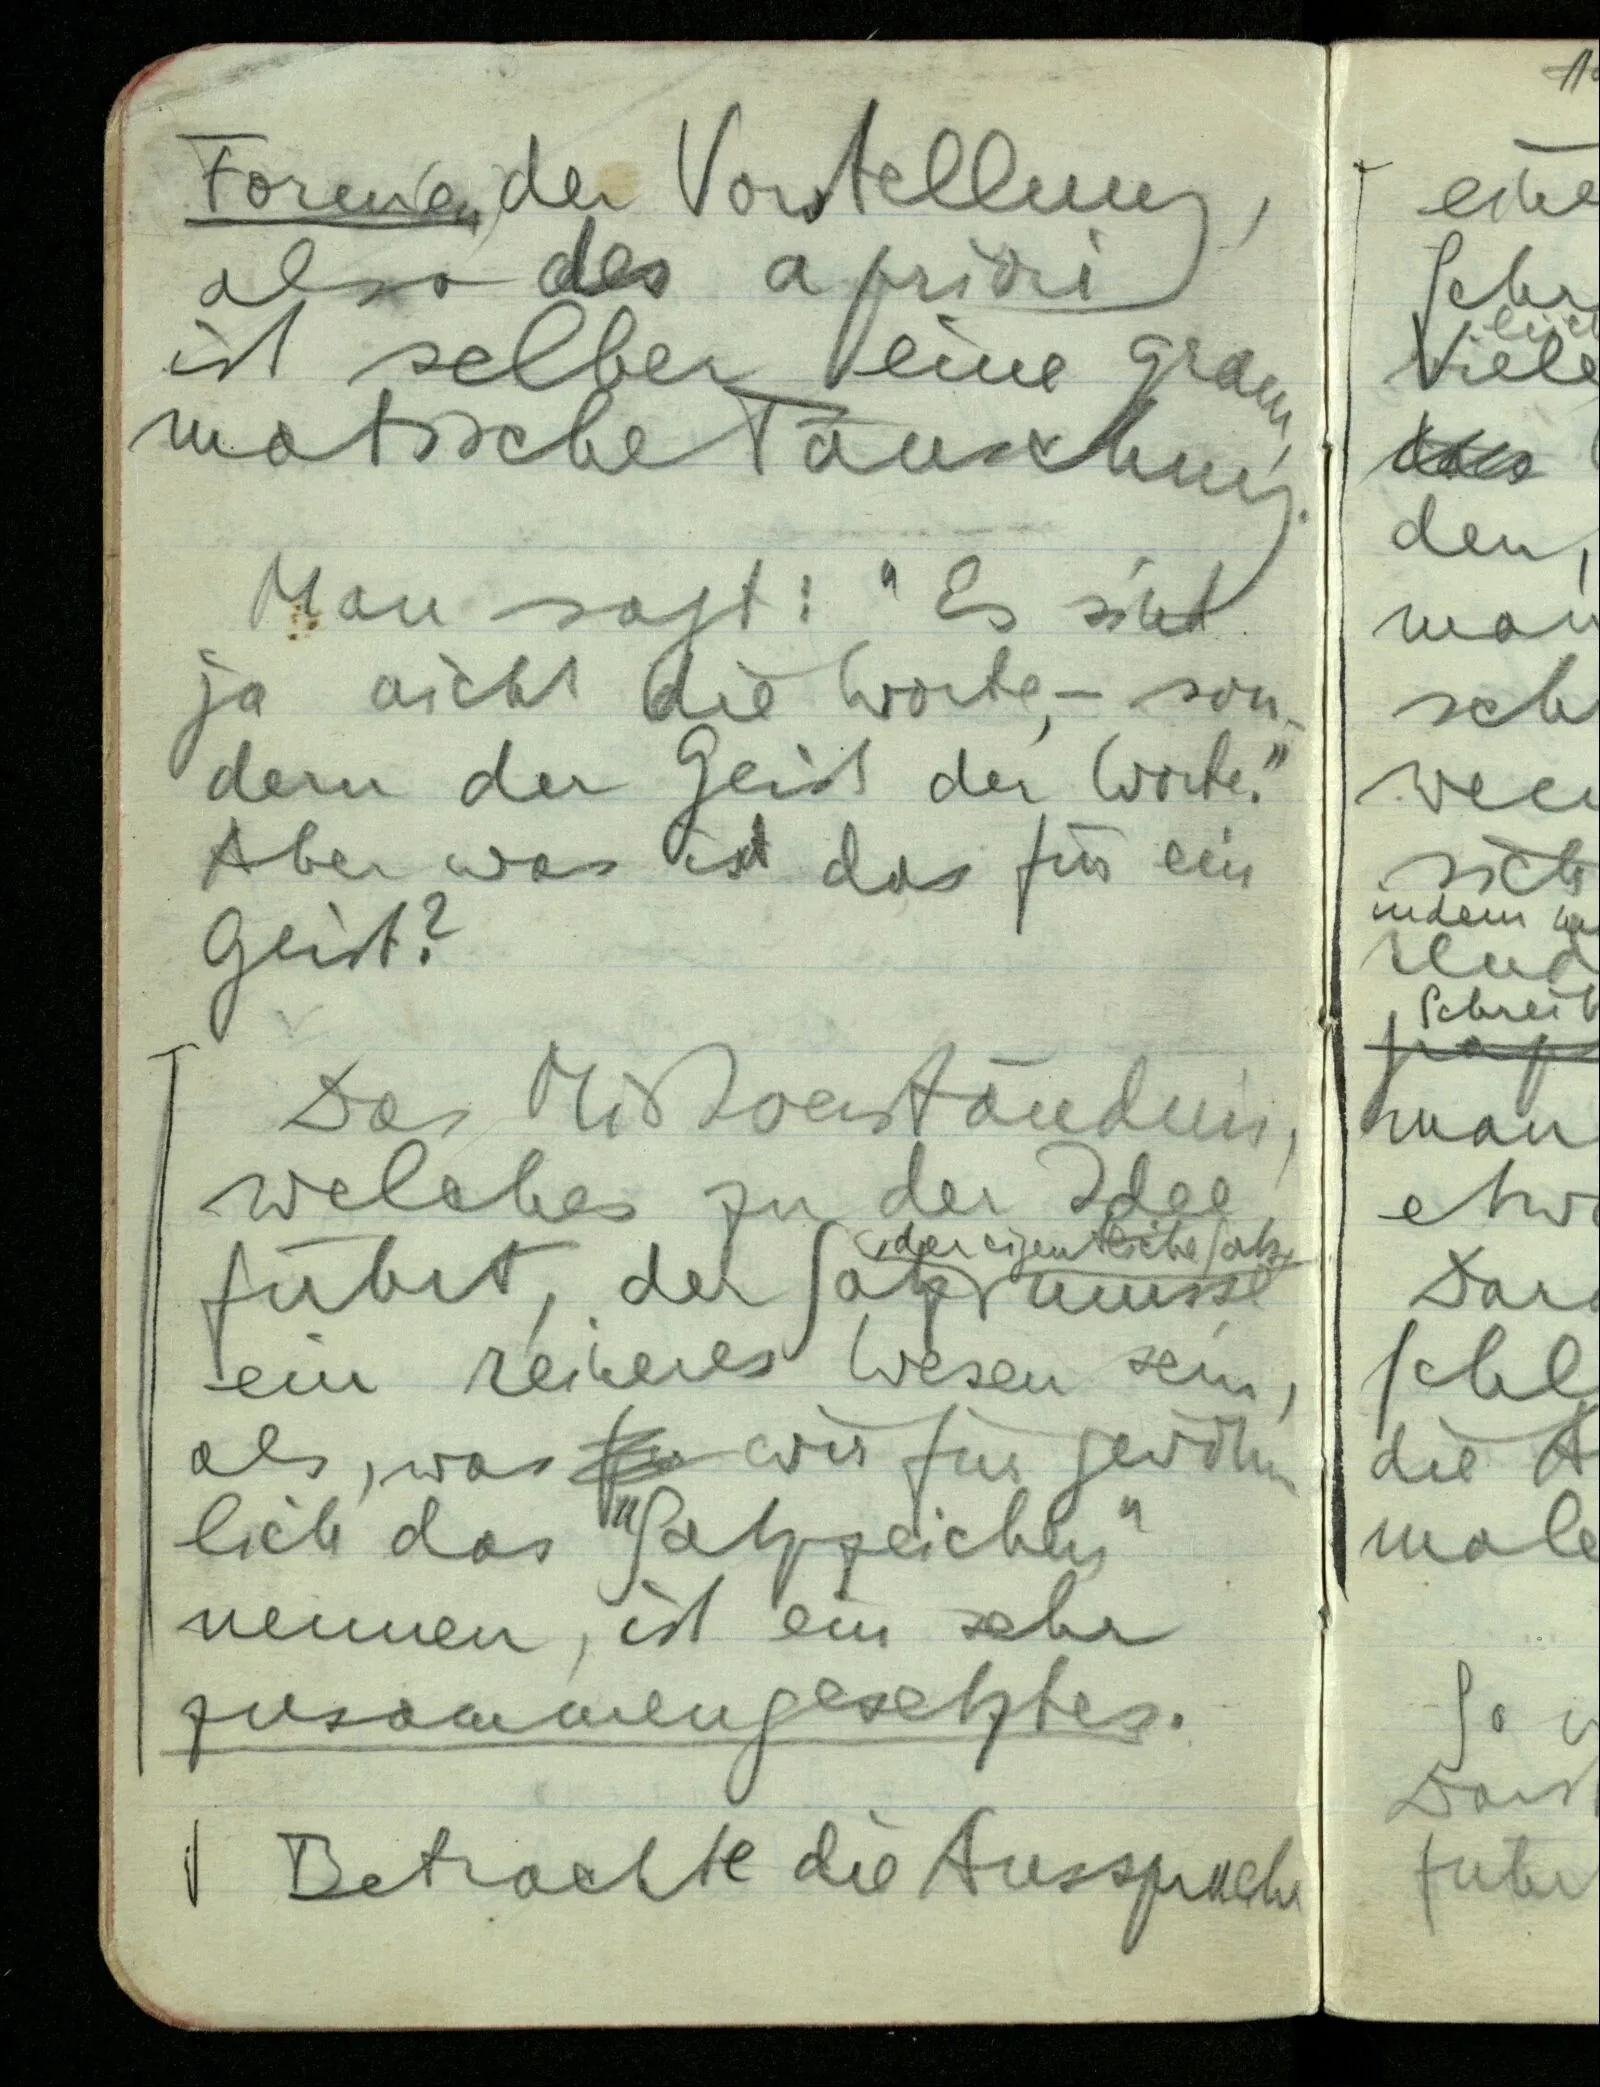 Formen, der Vorstellung,
also des a priori
ist selber eine gram
matische Täuschung.
Man sagt: "Es sind
ja nicht die Worte, – son-
dern der Geist der Worte."
Aber was ist das für ein
Geist?
Das Mißverständnis,
welches zu der Idee
der eigentliche Satz,
führt, der Satz müsse
ein reineres Wesen sein,
als, was wir für gewöhn
lich das "Satzzeichen"
nennen, ist ein sehr
zusammengesetztes.
Betrachte die Aussprache
eine
Viele
das
den,
man
sich
indem
Schreib
man
etwa
die A
male
So